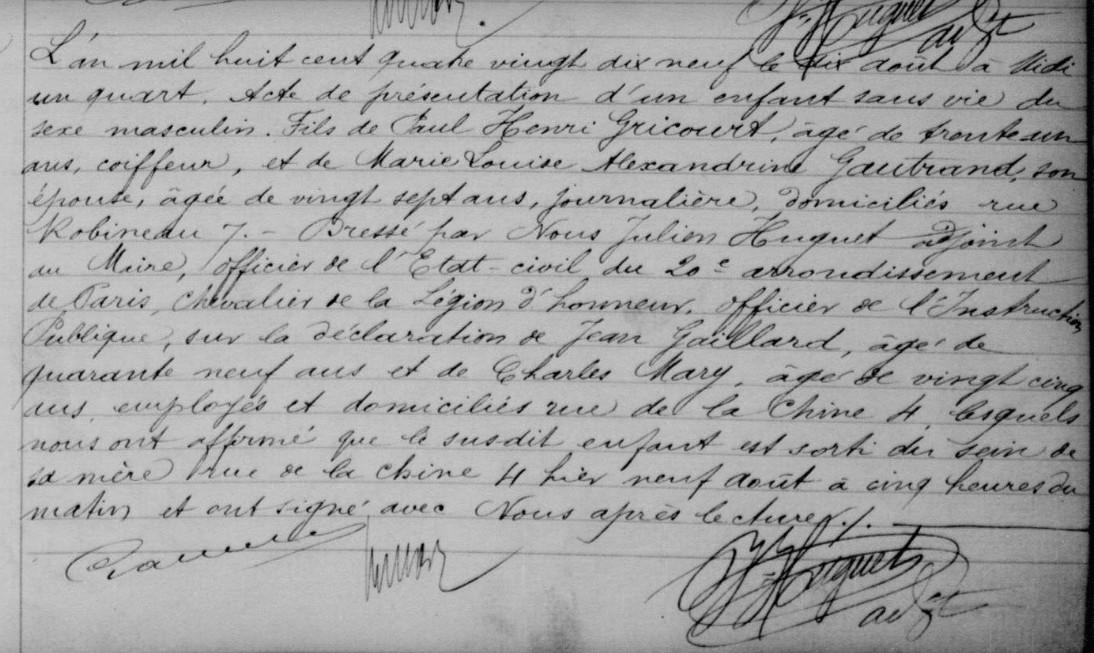 J. Huguet
adjt
L'an mil huit cent quatre vingt dix neuf le dix août à Midi
un quart. Acte de présentation d'un enfant sans vie du
sexe masculin. Fils de Paul Henri Gricourt, âgé de trente un
ans, coiffeur, et de Marie Louise Alexandrine Gautrand, son
épouse, âgée de vingt sept ans, journalière, domiciliés rue
Robineau 7. - Dressé par Nous Julien Huguet adjoint
au Maire, officier de l'Etat-civil du 20e arrondissement
de Paris, Chevalier de la Légion d'honneur, officier de l'Instruction
Publique, sur la déclaration de Jean Gaillard, âgé de
quarante neuf ans et de Charles Mary, âgé de vingt cinq
ans, employés et domiciliés rue de la Chine 4, lesquels
nous ont affirmé que le susdit enfant est sorti du sein de
sa mère rue de la Chine 4 hier neuf août à cinq heures du
matin et ont signé avec Nous après lecture ./.
J. Huguet
adjt